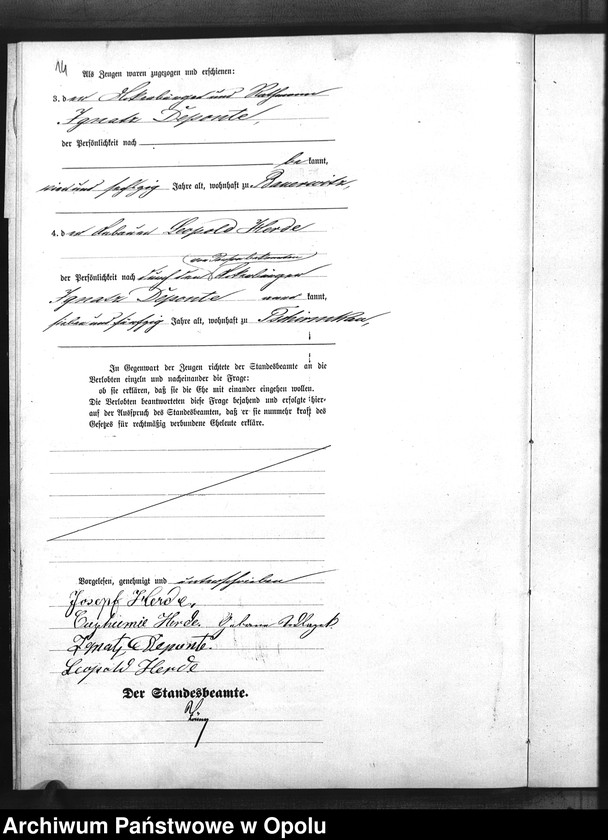 14
Als Zeugen waren zugezogen und erschienen:
3. den Ackerbürger und Rathmann
Ignatz Deponte,
der Persönlichkeit nach
be kannt,
vierund sechzig Jahre alt, wohnhaft zu Bauerwitz,
4. den Anbauer Leopold Herde
den Person bekannten
der Persönlichkeit nach durch den Ackerbürger
Ignatz Deponte aner kannt,
sieben und fünfzig Jahre alt, wohnhaft zu Tschirmkau,
In Gegenwart der Zeugen richtete der Standesbeamte an die
Verlobten einzeln und nacheinander die Frage:
ob sie erklären, daß sie die Ehe mit einander eingehen wollen.
Die Verlobten beantworteten diese Frage bejahend und erfolgte hier-
auf der Ausspruch des Standesbeamten, daß er sie nunmehr kraft des
Gesetzes für rechtmäßig verbundene Eheleute erkläre.
Vorgelesen, genehmigt und unterschrieben
Josepf Herde,
Euphemie Herde. Geborne
Ignatz Deponte.
Leopold Herde
Der Standesbeamte.
Archiwum Państwowe w Opolu